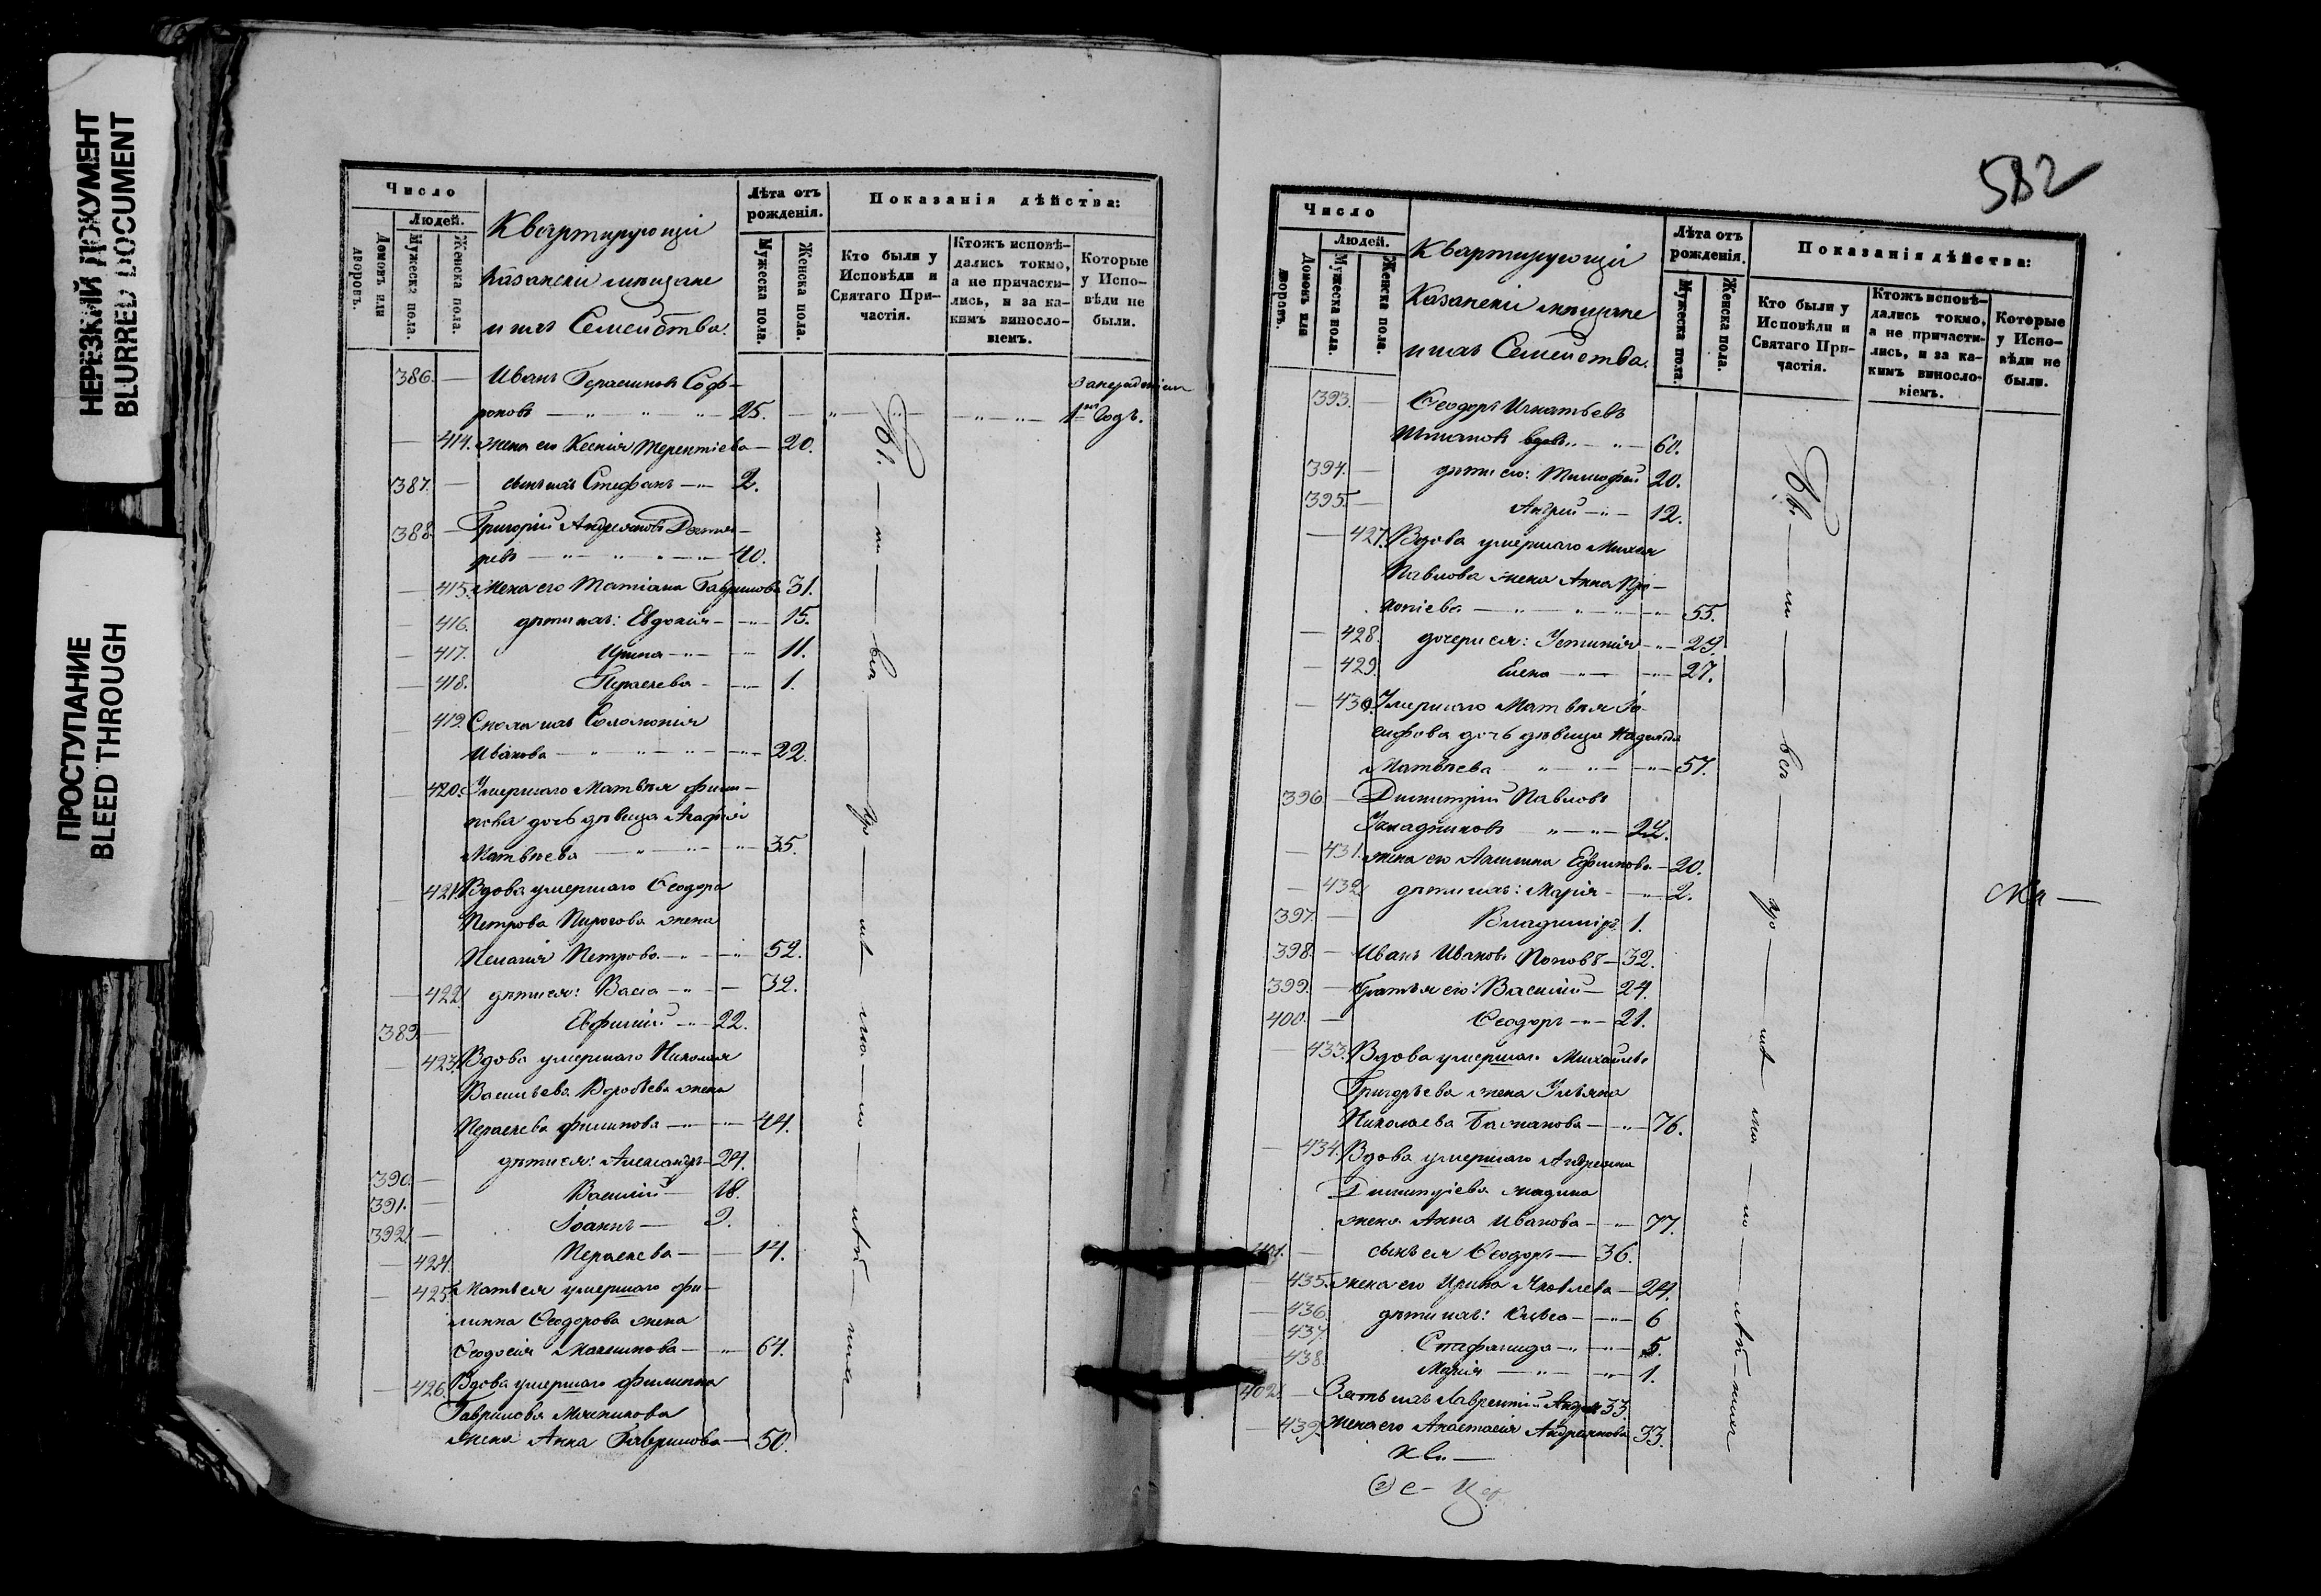 НЕРЕЗКИЙ ДОКУМЕНТ
BLURRED DOCUMENT
ПРОСТУПАНИЕ
BLEED THROUGH
Число
Людей.
Домовъ или дворовъ.
Мужеска пола.
Женска пола.
Квартирующіи
Казанскіи мѣщане
и ихъ Семейства.
Лѣта отъ рожденія.
Мужеска пола.
Женска пола.
Показанія дѣйства:
Кто были у Исповѣди и Святаго Причастія.
Ктожъ исповѣдались токмо, а не причастились, и за какимъ винословіемъ.
Которые у Исповѣди не были.
386. — Иванъ Герасимовъ Соф-
роновъ — 25.
1й годъ.
— 414. жена его Ксенія Терентіева — 20.
387. — сынъ ихъ Стефанъ — 2.
388. — Григорій Андреяновъ
— 40.
— 415. Жена его Татіана Гаврилова 31.
— 416. дѣти ихъ: Евдокія — 15.
— 417. Ирина — 11.
— 418. Параскева — 1.
— 419. Соломонія
Иванова — 22.
— 420. Умершаго Матвѣя Филип-
пова дочь дѣвица Агафія
Матвѣева — 35.
— 421. Вдова умершаго Ѳеодора
Петрова Пирогова жена
Пелагія Петрова — 52.
— 422. дѣти ея: Васса — 32.
389. — Евфимій — 22.
— 423. Вдова умершаго Николая
Васильева Воробьева жена
Параскева Филипова — 44.
390. — дѣти ея: Александръ — 24.
391. — Василій — 18.
392. — Іоаннъ — 9.
— 424. Параскева — 14.
— 425. Мать ея умершаго Фи-
липпа Ѳеодорова жена
Ѳеодосія Максимова — 64.
— 426. Вдова умершаго Филиппа
Гаврилова Мясникова
жена Анна Гаврилова — 50.
582
Число
Людей.
Домовъ или дворовъ.
Мужеска пола.
Женска пола.
Квартирующіи
Казанскіи мѣщане
и ихъ Семейства.
Лѣта отъ рожденія.
Мужеска пола.
Женска пола.
Показанія дѣйства:
Кто были у Исповѣди и Святаго Причастія.
Ктожъ исповѣдались токмо, а не причастились, и за какимъ винословіемъ.
Которые у Исповѣди не были.
393. — Ѳеодоръ Игнатьевъ
вдовъ — 60.
394. — дѣти его: Тимофей 20.
395. — Андрей — 12.
— 427. Вдова умершаго
Павлова жена Анна Про-
копіева — 55.
— 428. дочери ея: Устинія — 29.
— 429. Елена — 27.
— 430. Умершаго Матвѣя Іо-
сифова дочь дѣвица Надежда
Матвѣева — 57.
396. — Димитрій Павловъ
— 22.
— 431. жена его Акилина Ефимова — 20.
— 432. дѣти ихъ: Марія — 2.
397. — Владиміръ 1.
398. — Иванъ Ивановъ Поповъ — 32.
399. — братья его: Василій — 24.
400. — Ѳеодоръ — 21.
— 433. Вдова умершаго Михаила
Григорьева жена Ульяна
Николаева — 76.
— 434. Вдова умершаго Андреяна
Димитріева
жена Анна Иванова — 77.
401. — сынъ ея Ѳеодоръ — 36.
— 435. жена его Ирина Яковлева — 24.
— 436. дѣти ихъ: — 6
— 437. Стефанида — 5.
— 438. Марія — 1.
402. — Зять ихъ Лаврентій 33.
— 439. Жена его Анастасія Андреянова 33.